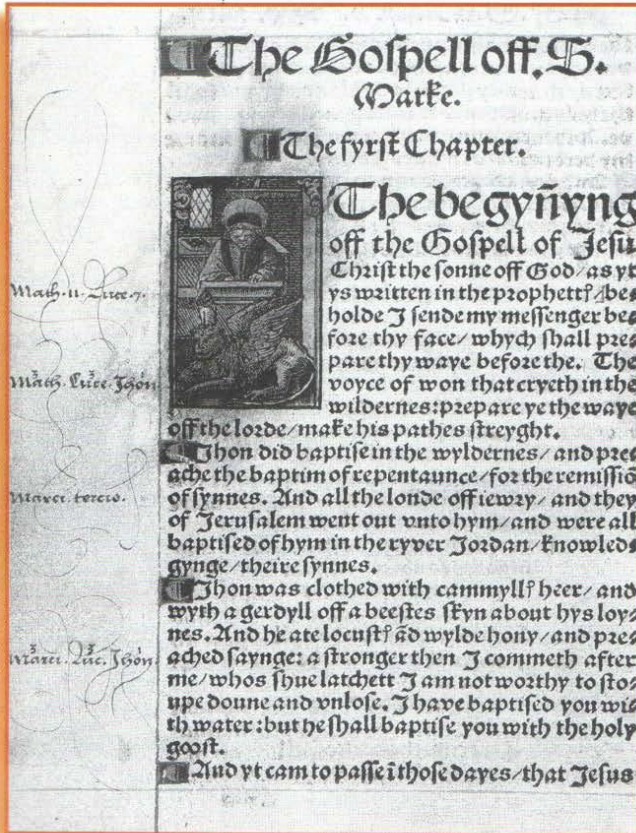 The Gospell off. S.
Marke.
The fyrst Chapter.
The begyñyng
off the Gospell of Jesu
Christ the sonne off God/as yt
ys written in the prophettꝭ/be⸗
holde I sende my messenger be⸗
fore thy face/whych shall pre⸗
pare thy waye before the. The
voyce of won that cryeth in the
wildernes:prepare ye the waye
off the lorde/make his pathes streyght.
Jhon did baptise in the wyldernes/and pre⸗
ache the baptim of repentaunce/for the remissiõ
of synnes. And all the londe off iewry/and they
of Jerusalem went out vnto hym/and were all
baptised of hym in the ryver Jordan/knowled⸗
gynge/theire synnes.
Jhon was clothed with cammyllꝭ heer/and
wyth a gerdyll off a beestes skyn about hys loy⸗
nes. And he ate locustꝭ ãd wylde hony/and pre⸗
ached saynge: a stronger then I commeth after
me/whos shue latchett I am not worthy to sto⸗
upe doune and vnlose. I have baptised you wi⸗
th water:but he shall baptise you with the holy
goost.
And yt cam to passe ĩ those dayes/that Jesus
Math. 11. Luce. 7.
Math. Luce. Jhon
Marci. tercio.
Marci. Luc. Jhon